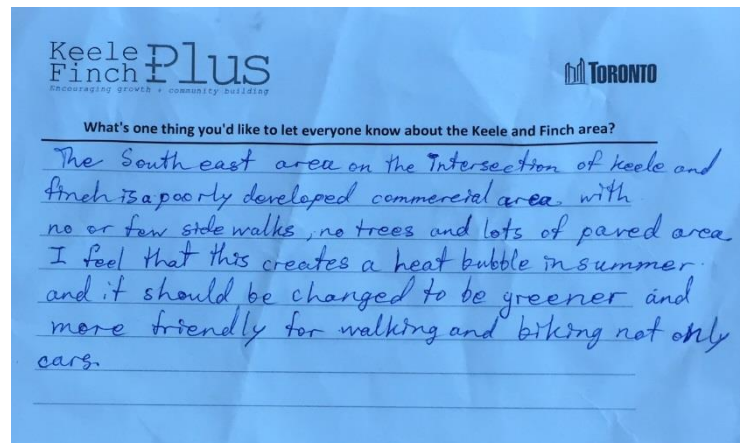 Keele
Finch Plus
Encouraging growth + community building
TORONTO
What's one thing you'd like to let everyone know about the Keele and Finch area?
The South east area on the Intersection of keele and
finch is a poorly developed commercial area with
no or few side walks, no trees and lots of paved area
I feel that this creates a heat bubble in summer.
and it should be changed to be greener and
more friendly for walking and biking not only
cars.